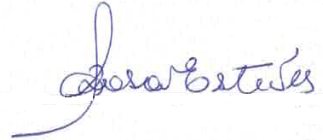 Rosa Esteves